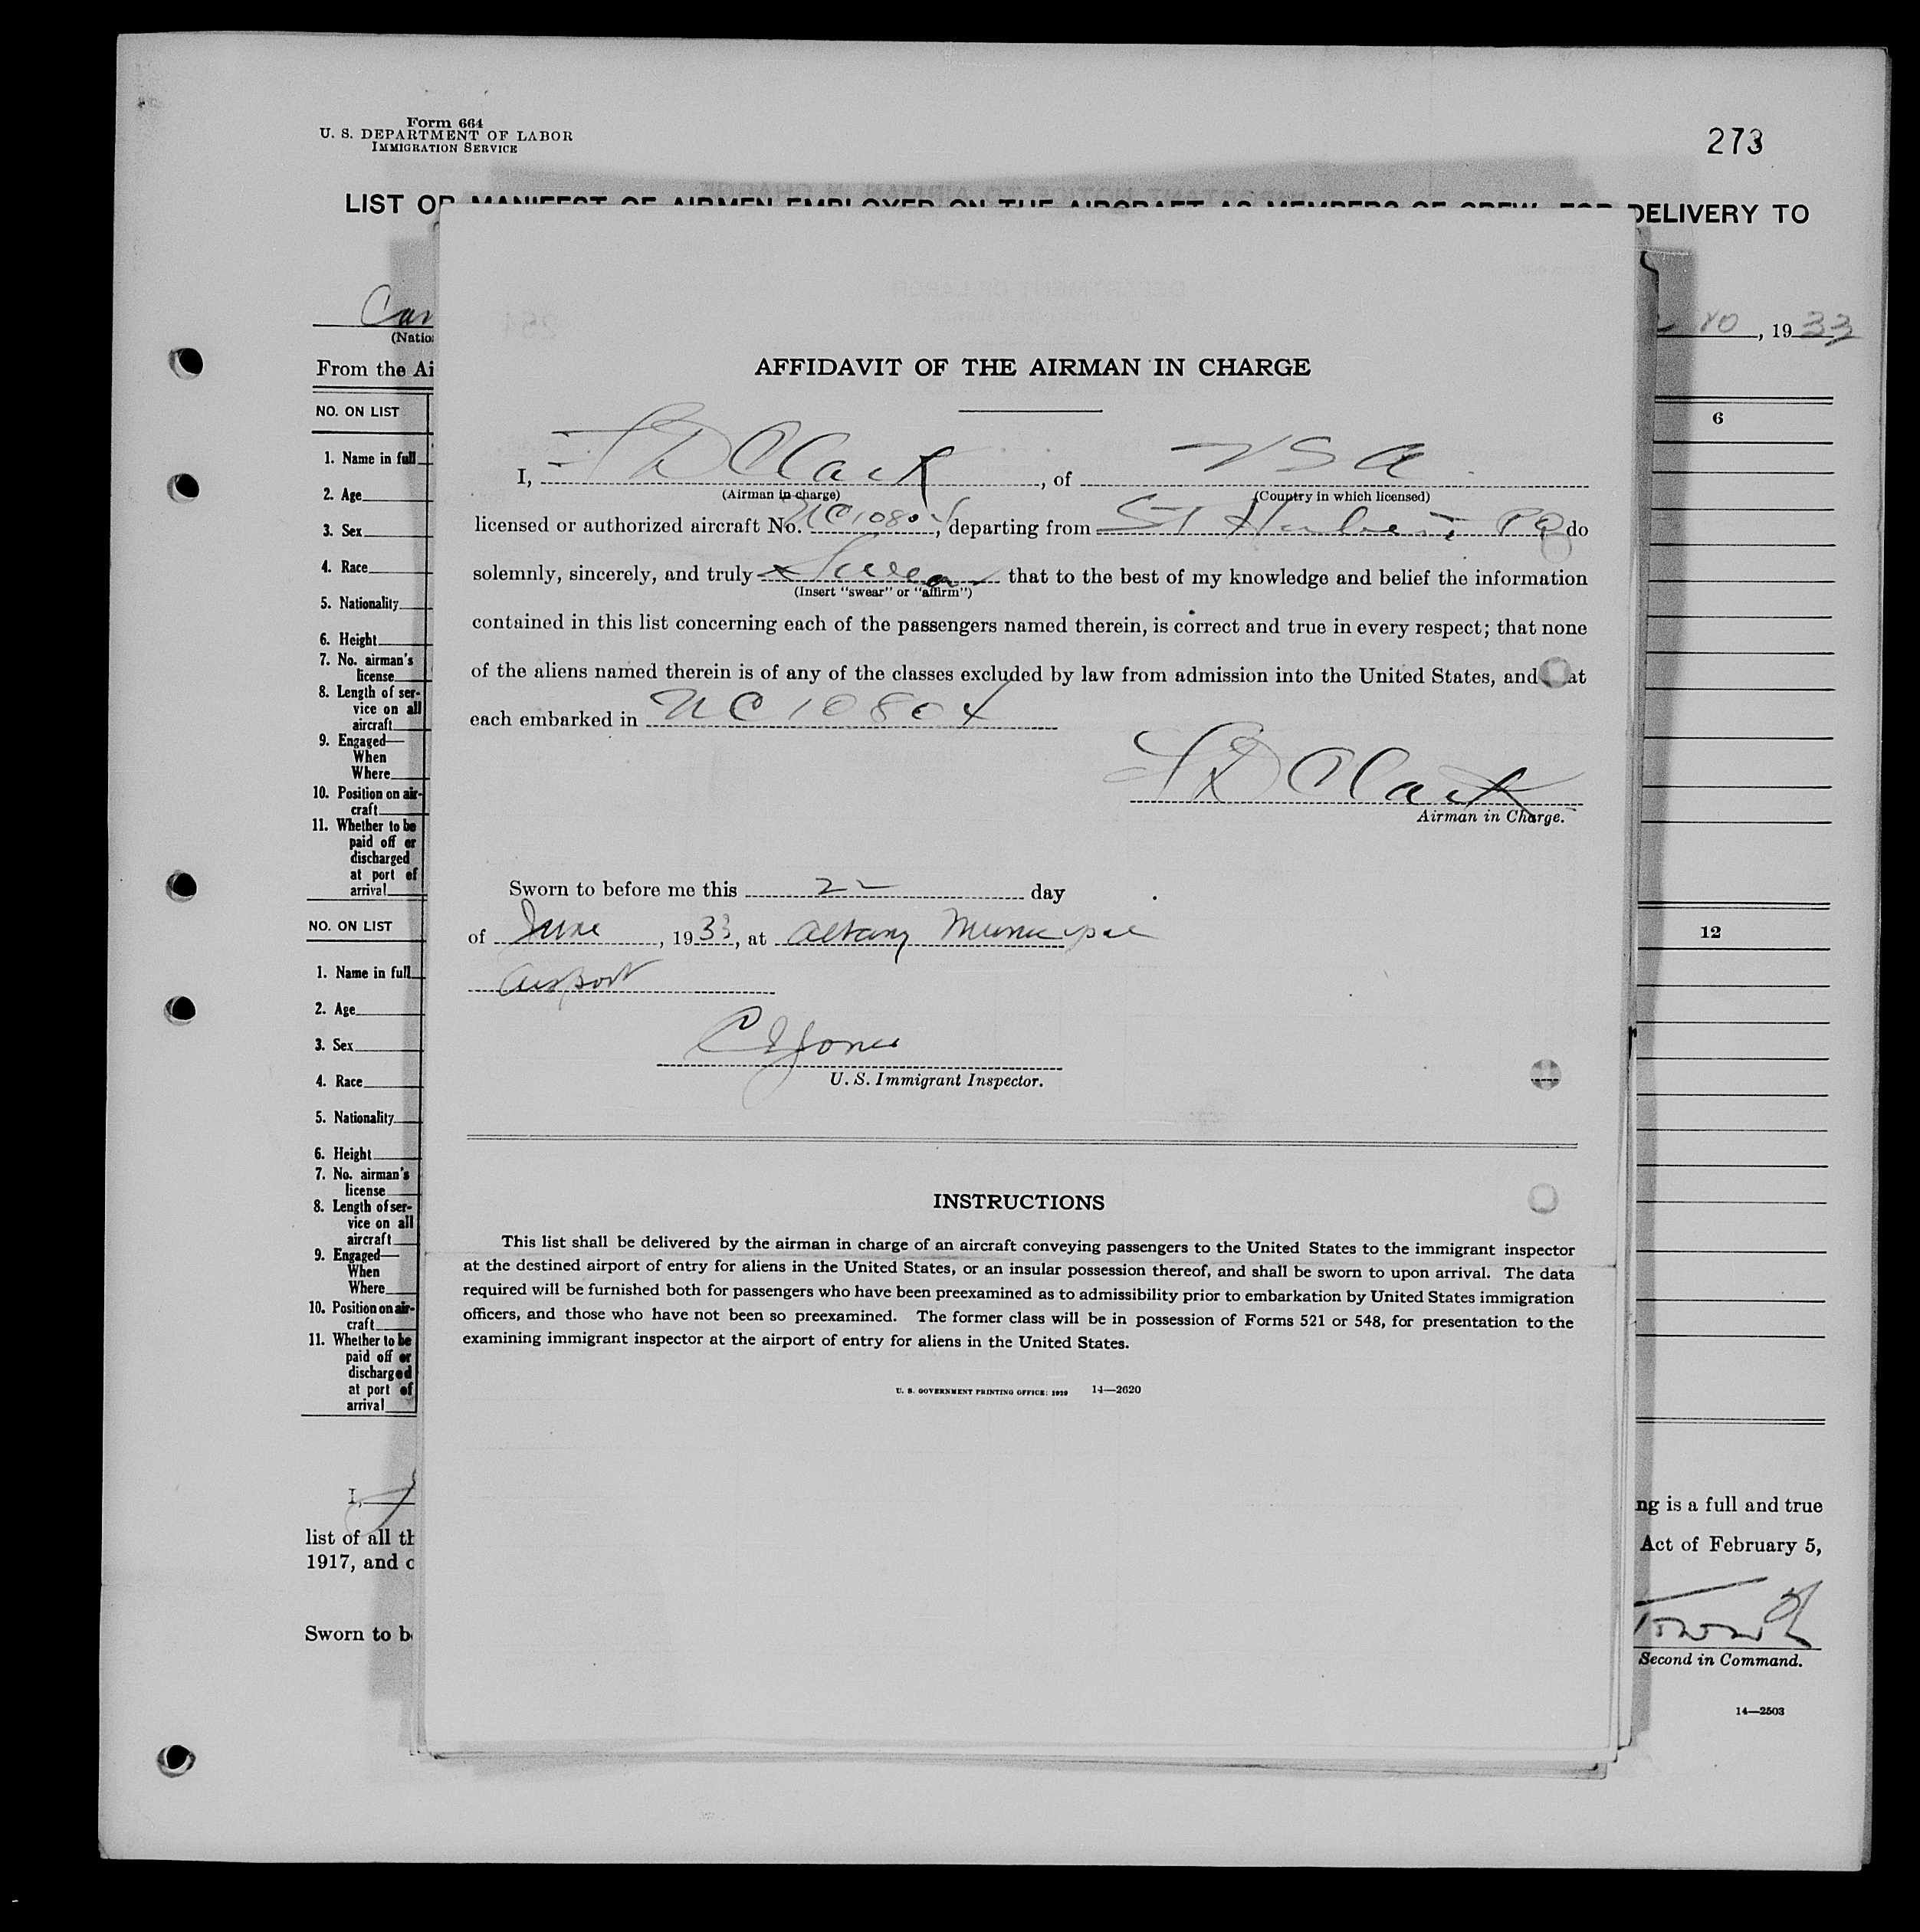 Form 664
U. S. DEPARTMENT OF LABOR
IMMIGRATION SERVICE
273
LIST OR MANIFEST OF AIRMEN EMPLOYED ON THE AIRCRAFT AS MEMBERS OF CREW, FOR DELIVERY TO
Can
, 1933
(Natio
From the Ai
NO. ON LIST
6
1. Name in full
2. Age
3. Sex
4. Race
5. Nationality
6. Height
7. No. airman's
license
8. Length of ser-
vice on all
aircraft
9. Engaged—
When
Where
10. Position on air-
craft
11. Whether to be
paid off or
discharged
at port of
arrival
NO. ON LIST
12
1. Name in full
2. Age
3. Sex
4. Race
5. Nationality
6. Height
7. No. airman's
license
8. Length of ser-
vice on all
aircraft
9. Engaged—
When
Where
10. Position on air-
craft
11. Whether to be
paid off or
discharged
at port of
arrival
I,
ng is a full and true
list of all th
Act of February 5,
1917, and c
Sworn to be
Second in Command.
14—2503
AFFIDAVIT OF THE AIRMAN IN CHARGE
I, F D Clark, of USA
(Airman in charge) (Country in which licensed)
licensed or authorized aircraft No. NC10804, departing from St Hubert, PQ do
solemnly, sincerely, and truly swear that to the best of my knowledge and belief the information
(Insert "swear" or "affirm")
contained in this list concerning each of the passengers named therein, is correct and true in every respect; that none
of the aliens named therein is of any of the classes excluded by law from admission into the United States, and at
each embarked in NC10804
F D Clark
Airman in Charge.
Sworn to before me this 22 day
of June, 1933, at Albany Municipal
Airport
C E Jones
U. S. Immigrant Inspector.
INSTRUCTIONS
This list shall be delivered by the airman in charge of an aircraft conveying passengers to the United States to the immigrant inspector
at the destined airport of entry for aliens in the United States, or an insular possession thereof, and shall be sworn to upon arrival. The data
required will be furnished both for passengers who have been preexamined as to admissibility prior to embarkation by United States immigration
officers, and those who have not been so preexamined. The former class will be in possession of Forms 521 or 548, for presentation to the
examining immigrant inspector at the airport of entry for aliens in the United States.
U. S. GOVERNMENT PRINTING OFFICE: 1929 14—2620